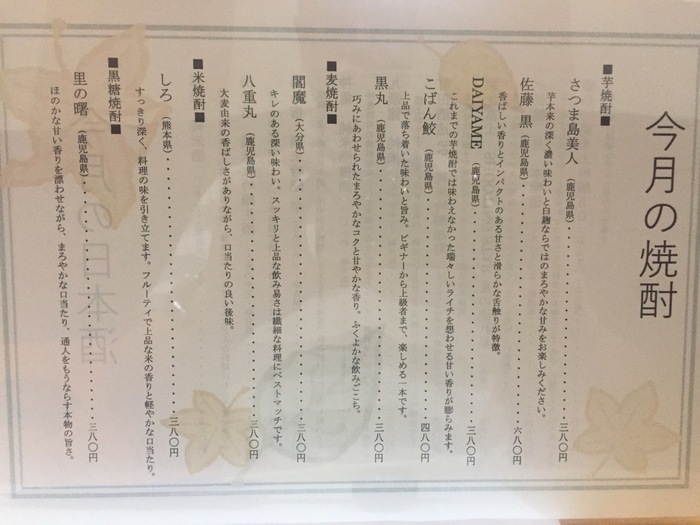 今月の焼酎
■芋焼酎■
さつま島美人（鹿児島県）・・・・・・・・・・・・・・・・・・・・三八〇円
芋本来の深く濃い味わいと白麹ならではのまろやかな甘みをお楽しみください。
佐藤 黒（鹿児島県）・・・・・・・・・・・・・・・・・・・・六八〇円
香ばしい香りとインパクトのある甘さと滑らかな舌触りが特徴。
DAIYAME（鹿児島県）・・・・・・・・・・・・・・・・・・・・三八〇円
これまでの芋焼酎では味わえなかった瑞々しいライチを想わせる甘い香りが膨らみます。
こばん鮫（鹿児島県）・・・・・・・・・・・・・・・・・・・・四八〇円
上品で落ち着いた味わいと旨み。ビギナーから上級者まで、楽しめる一本です。
黒丸（鹿児島県）・・・・・・・・・・・・・・・・・・・・三八〇円
巧みにあわせられたまろやかなコクと甘やかな香り。ふくよかな飲みごこち。
■麦焼酎■
閻魔（大分県）・・・・・・・・・・・・・・・・・・・・三八〇円
キレのある深い味わい。スッキリと上品な飲み易さは繊細な料理にベストマッチです。
八重丸（鹿児島県）・・・・・・・・・・・・・・・・・・・・三八〇円
大麦由来の香ばしさがありながら、口当たりの良い後味。
■米焼酎■
しろ（熊本県）・・・・・・・・・・・・・・・・・・・・三八〇円
すっきり深く、料理の味を引き立てます。フルーティで上品な米の香りと軽やかな口当たり。
■黒糖焼酎■
里の曙（鹿児島県）・・・・・・・・・・・・・・・・・・・・三八〇円
ほのかな甘い香りを漂わせながら、まろやかな口当たり、通人をもうならす本物の旨さ。
月の日本酒